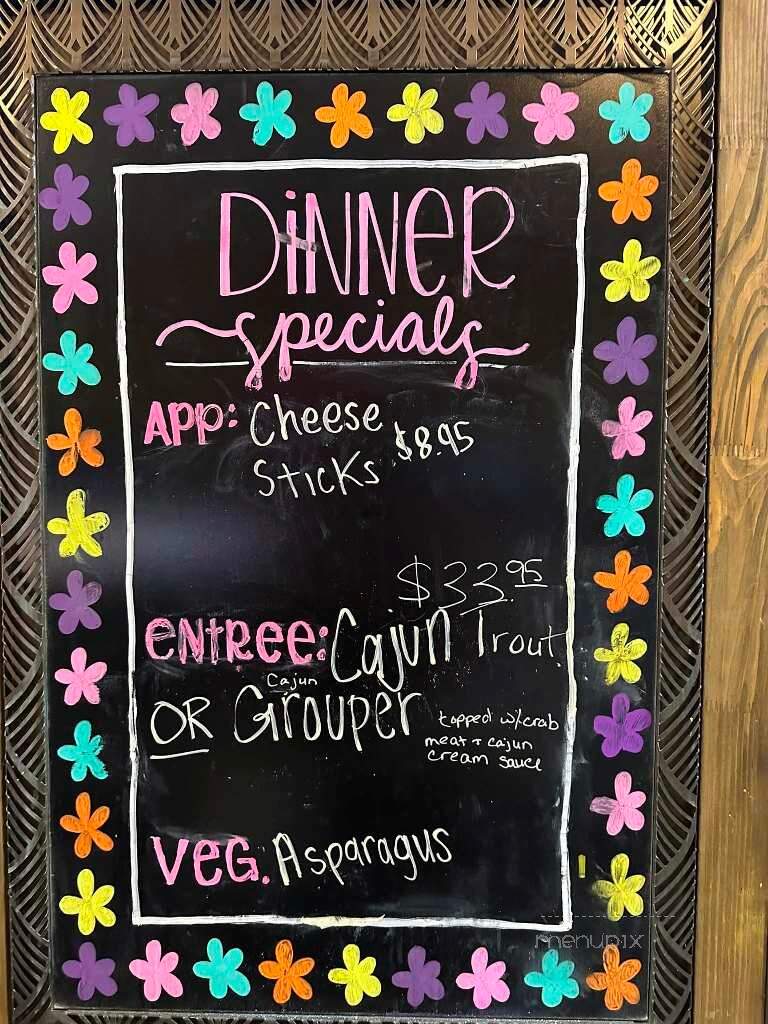 DiNNeR
specials
APP: Cheese
Sticks $8.95
$33.95
eNtRee: Cajun Trout
Cajun
OR Grouper topped w/crab
meat + cajun
cream sauce
VeG. Asparagus
menupix